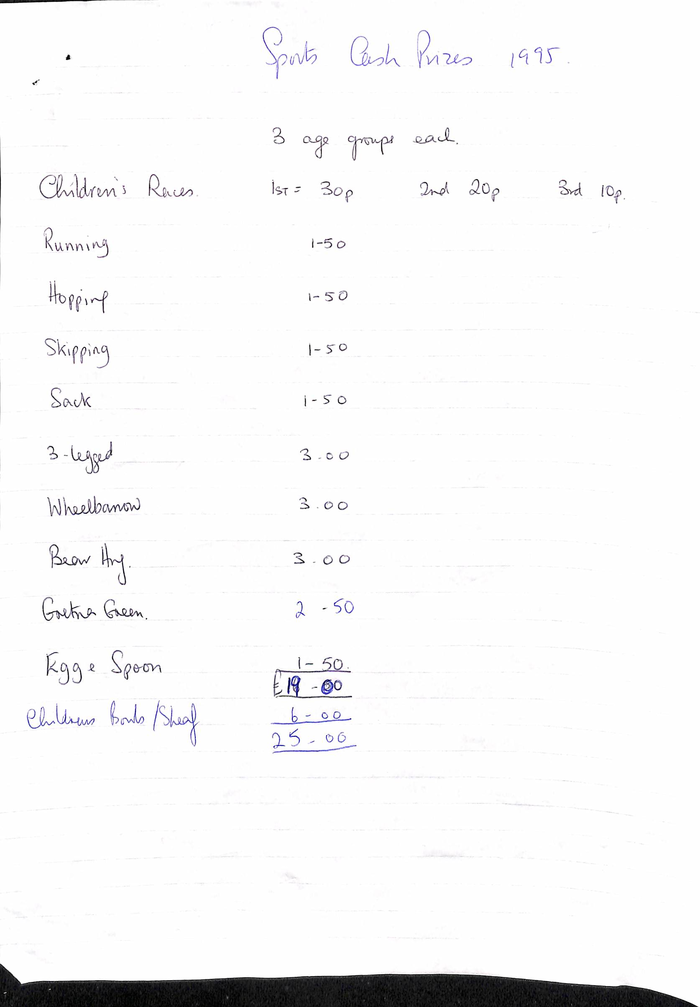 Sports Cash Prizes 1995.
3 age groups each.
Children's Races. 1ST = 30p 2nd 20p 3rd 10p.
Running 1-50
Hopping 1-50
Skipping 1-50
Sack 1-50
3-legged 3.00
Wheelbarrow 3.00
Bear Hug. 3.00
Gretna Green. 2-50
Egg & Spoon 1-50.
£19-00
Childrens Bowls/Sheaf 6-00
25-00